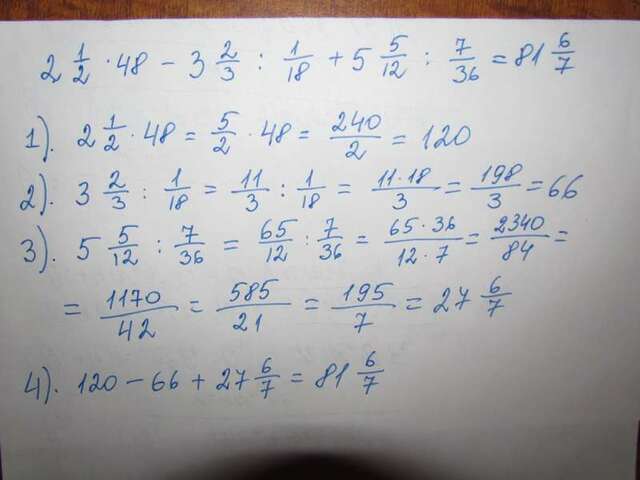 2 1/2 · 48 − 3 2/3 : 1/18 + 5 5/12 : 7/36 = 81 6/7
1). 2 1/2 · 48 = 5/2 · 48 = 240/2 = 120
2). 3 2/3 : 1/18 = 11/3 : 1/18 = 11·18/3 = 198/3 = 66
3). 5 5/12 : 7/36 = 65/12 : 7/36 = 65·36/12·7 = 2340/84 =
= 1170/42 = 585/21 = 195/7 = 27 6/7
4). 120 − 66 + 27 6/7 = 81 6/7